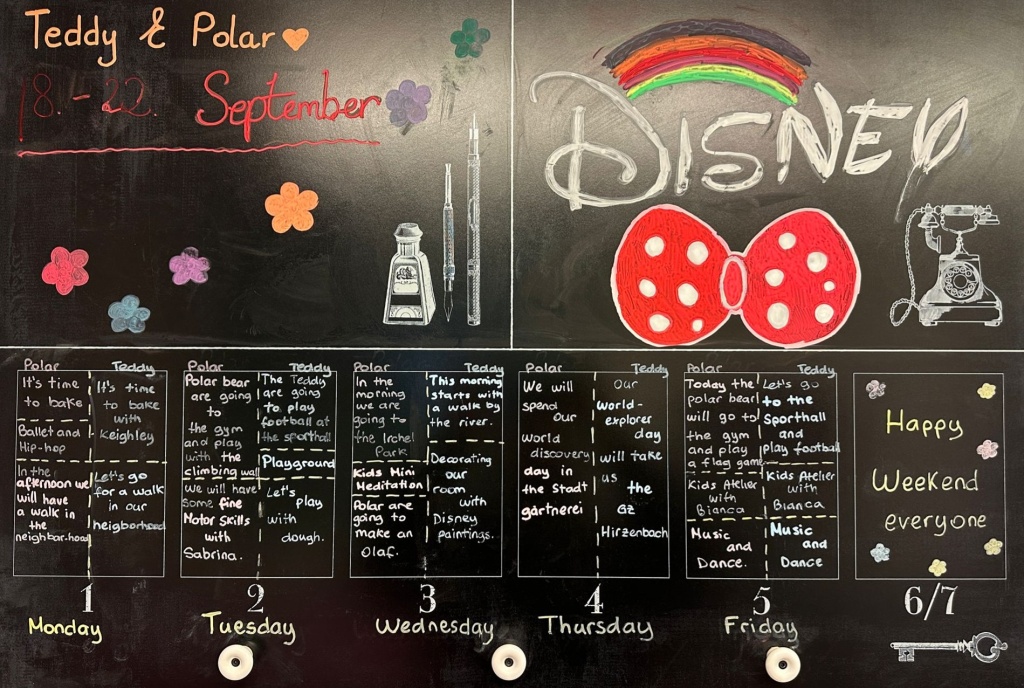 Teddy & Polar
18. - 22. September
DISNEY
Polar
It's time
to bake
Ballet and
Hip-hop
In the
afternoon we
will have
a walk in
the
neighbor-hood
Teddy
It's time
to bake
with
Keighley
Let's go
for a walk
in our
neigborhood
1
Monday
Polar
Polar bear
are going
to
the gym
and play
with the
climbing wall
We will have
some fine
Motor Skills
with
Sabrina.
Teddy
The Teddy
are going
to play
football at
the sporthall
Playground
Let's
play
with
dough.
2
Tuesday
Polar
In the
morning
we are
going to
the Irchel
Park
Kids Mini
Meditation
Polar are
going to
make an
Olaf.
Teddy
This morning
starts with
a walk by
the river.
Decorating
our
room
with
Disney
paintings.
3
Wednesday
Polar
We will
spend
our
world
discovery
day in
the Stadt
gärtnerei
Teddy
Our
world-
explorer
day
will take
us
the
GZ
Hirzenbach
4
Thursday
Polar
Today the
polar bear
will go to
the gym
and play
a flag game
Kids Atelier
with
Bianca
Music
and
Dance.
Teddy
Let's go
to the
Sporthall
and
play football
Kids Atelier
with
Bianca
Music
and
Dance
5
Friday
Happy
Weekend
everyone
6/7